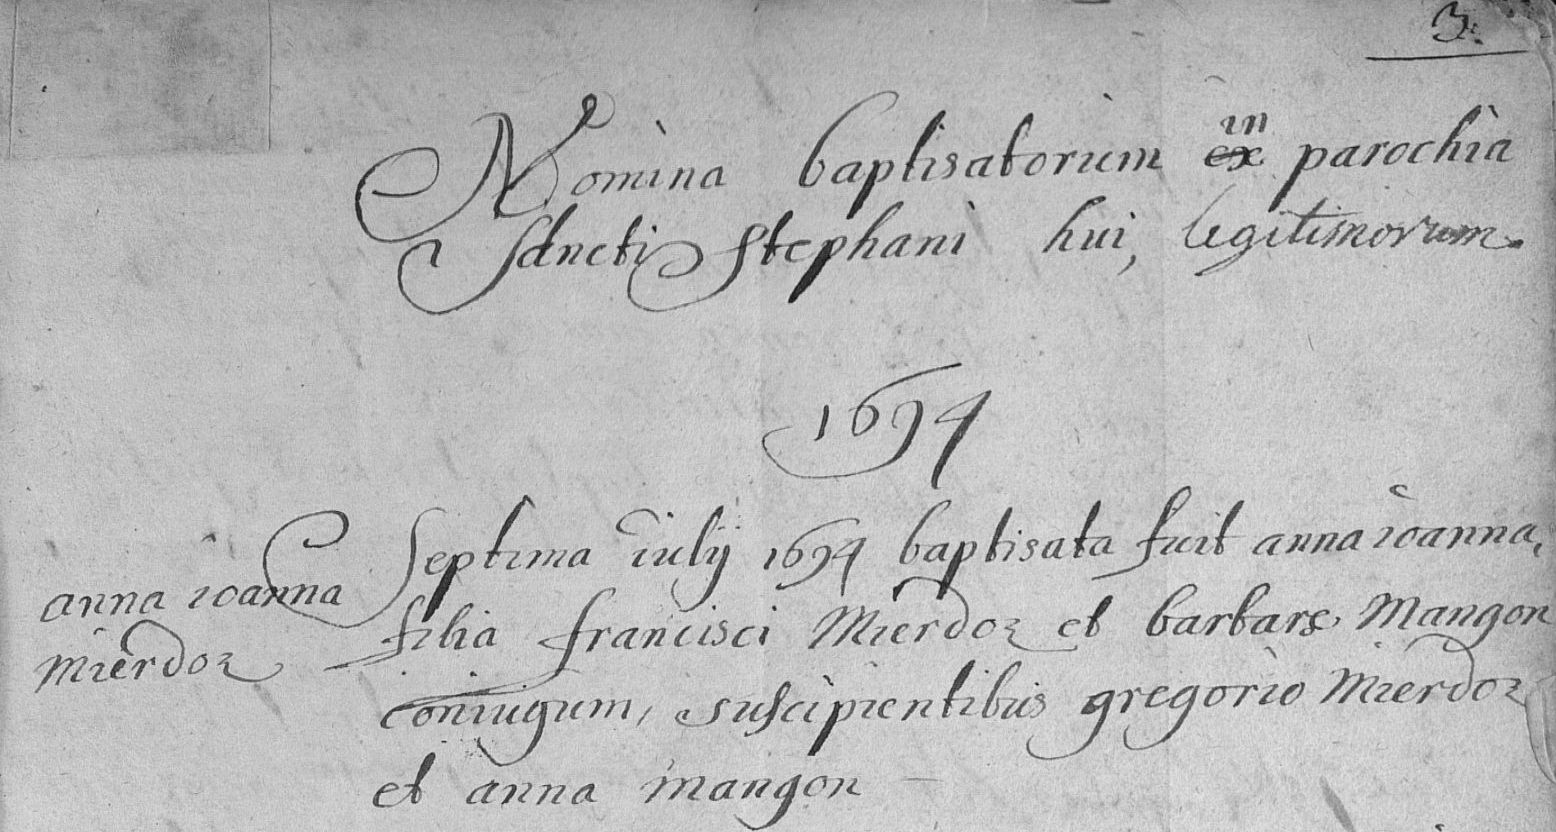 3.
Nomina baptisatorum in ex parochia
Sancti Stephani hui, legitimorum
1694
anna ioanna
Mierdoz
Septima iulij 1694 baptisata fuit anna ioanna,
filia francisci Mierdoz et barbarę Mangon
coniugum, suscipientibus gregorio Mierdoz
et anna mangon